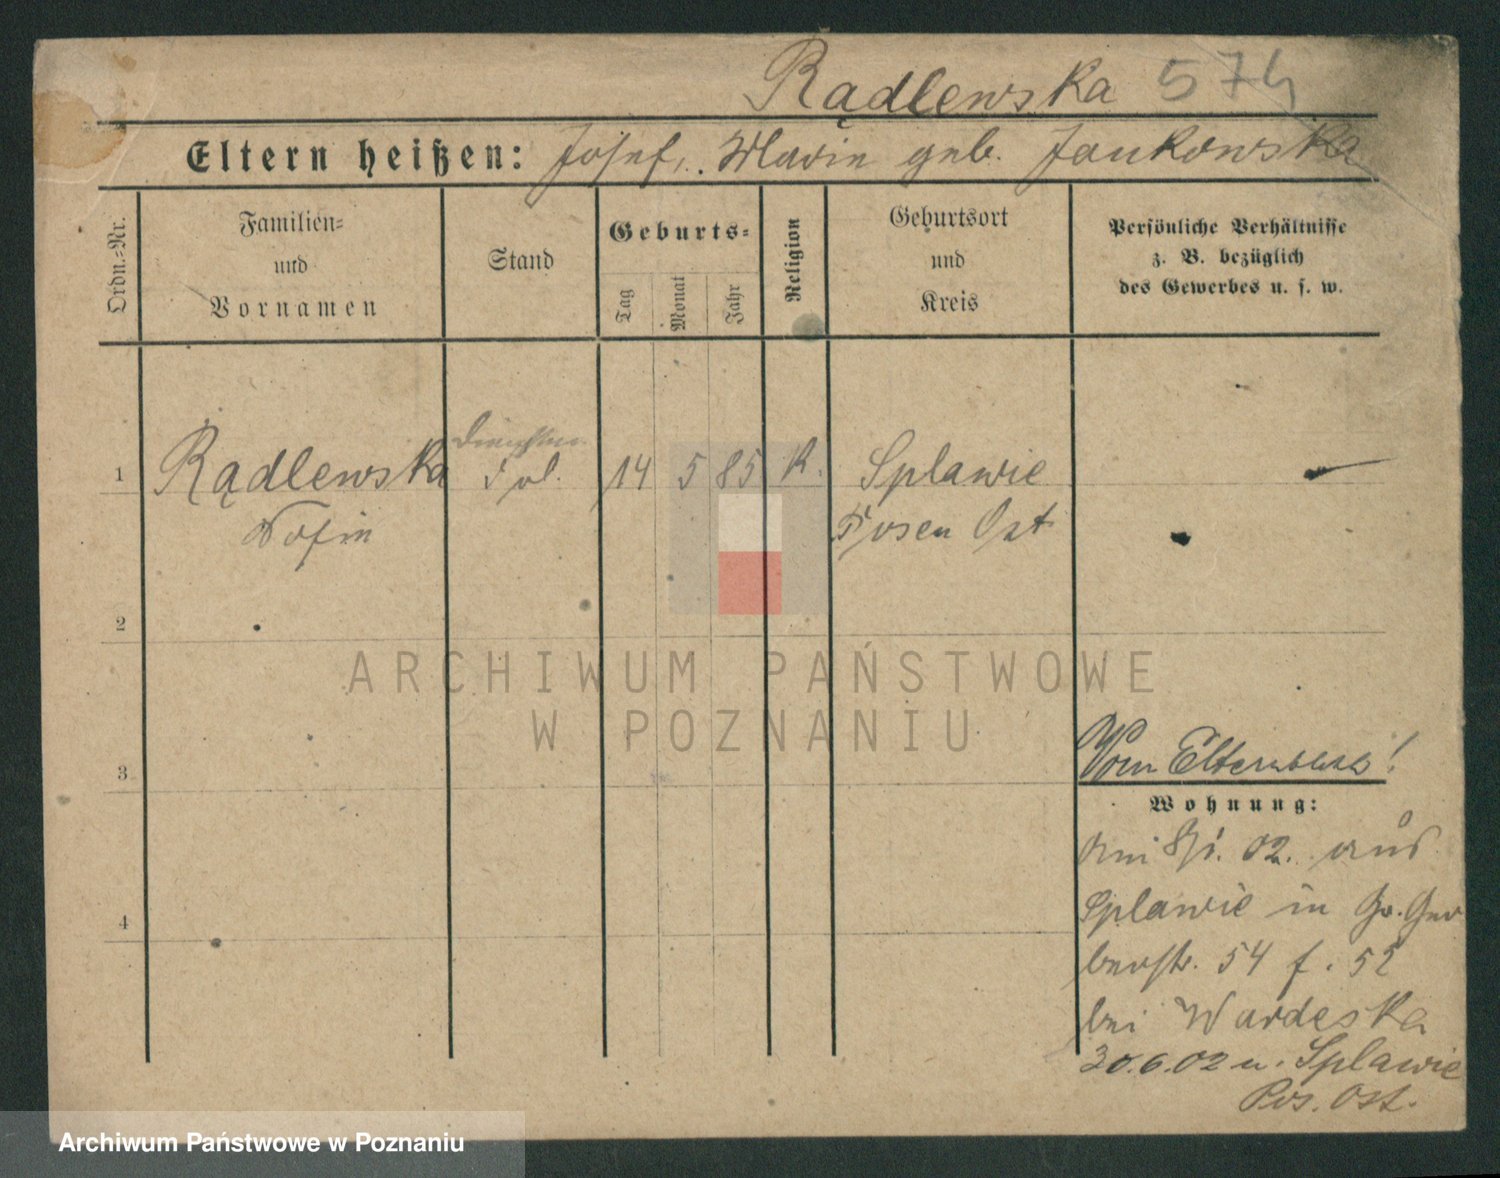 Rądlewska 574
Eltern heißen: Josef, Marie geb. Jankowska
Ordn.-Nr.
Familien-
und
Vornamen
Stand
Geburts-
Tag
Monat
Jahr
Religion
Geburtsort
und
Kreis
Persönliche Verhältnisse
z. B. bezüglich
des Gewerbes u. s. w.
1 Rądlewska 14 5 85 K. Splawie
Sofie Posen Ost
2
ARCHIWUM PAŃSTWOWE
W POZNANIU
3
Vom Elternblatt!
Wohnung:
02. aus
Splawie in Gr. Ger
berstr. 54 f. 52
bei Wardeska
4
30.6.02 n. Splawie
Pos. Ost.
Archiwum Państwowe w Poznaniu